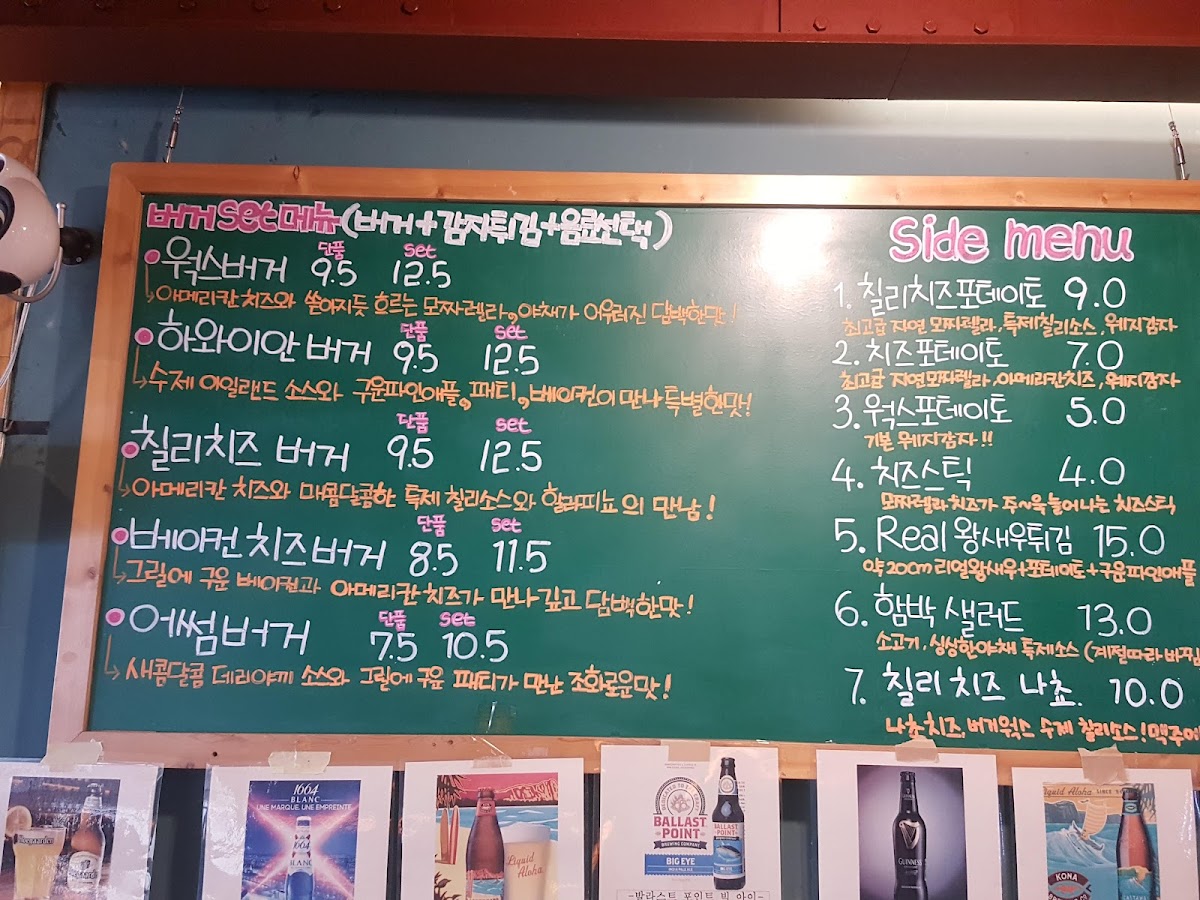 버거 set 메뉴 (버거+감자튀김+음료선택)
단품 set
웍스버거 9.5 12.5
아메리칸 치즈와 쏟아지듯 흐르는 모짜렐라, 야채가 어우러진 담백한맛!
단품 set
하와이안 버거 9.5 12.5
수제 아일랜드 소스와 구운파인애플, 패티, 베이컨이 만나 특별한맛!
단품 set
칠리치즈 버거 9.5 12.5
아메리칸 치즈와 매콤달콤한 특제 칠리소스와 할라피뇨의 만남!
단품 set
베이컨 치즈버거 8.5 11.5
그릴에 구운 베이컨과 아메리칸 치즈가 만나 깊고 담백한맛!
단품 set
어썸버거 7.5 10.5
새콤달콤 데리야끼 소스와 그릴에 구운 패티가 만난 조화로운맛!
Side menu
1. 칠리치즈포테이토 9.0
최고급 자연 모짜렐라, 특제칠리소스, 웨지감자
2. 치즈포테이토 7.0
최고급 자연모짜렐라, 아메리칸치즈, 웨지감자
3. 웍스포테이토 5.0
기본 웨지감자!!
4. 치즈스틱 4.0
모짜렐라 치즈가 주~욱 늘어나는 치즈스틱
5. Real 왕새우튀김 15.0
약 20cm 리얼왕새우+포테이토+구운파인애플
6. 함박 샐러드 13.0
소고기, 싱싱한야채 특제소스 (계절따라 바뀜
7. 칠리 치즈 나쵸. 10.0
나쵸치즈, 버거웍스 수제 칠리소스! 맥주에
Hoegaarden
1664
BLANC
UNE MARQUE, UNE EMPREINTE
1664
BLANC
Liquid Aloha.
BALLAST
POINT
BREWING COMPANY
BIG EYE
INDIA PALE ALE
-발라스트 포인트 빅 아이-
GUINNESS
Liquid Aloha.
KONA